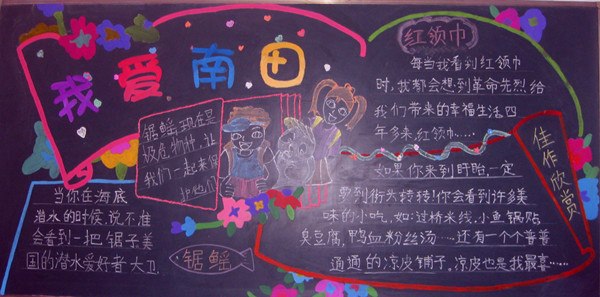 我爱南田
锯鳐现在是
极危物种，让
我们一起来保
护他们
当你在海底
潜水的时候，说不准
会看到一把锯子美
国的潜水爱好者大卫
锯鳐
红领巾
每当我看到红领巾
时，我都会想到革命先烈给
我们带来的幸福生活四
年多来，红领巾……
佳作欣赏
如果你来到盱眙，一定
要到街头转转！你会看到许多美
味的小吃，如：过桥米线，小鱼锅贴
臭豆腐，鸭血粉丝汤……还有一个个普普
通通的凉皮铺子，凉皮也是我最喜……